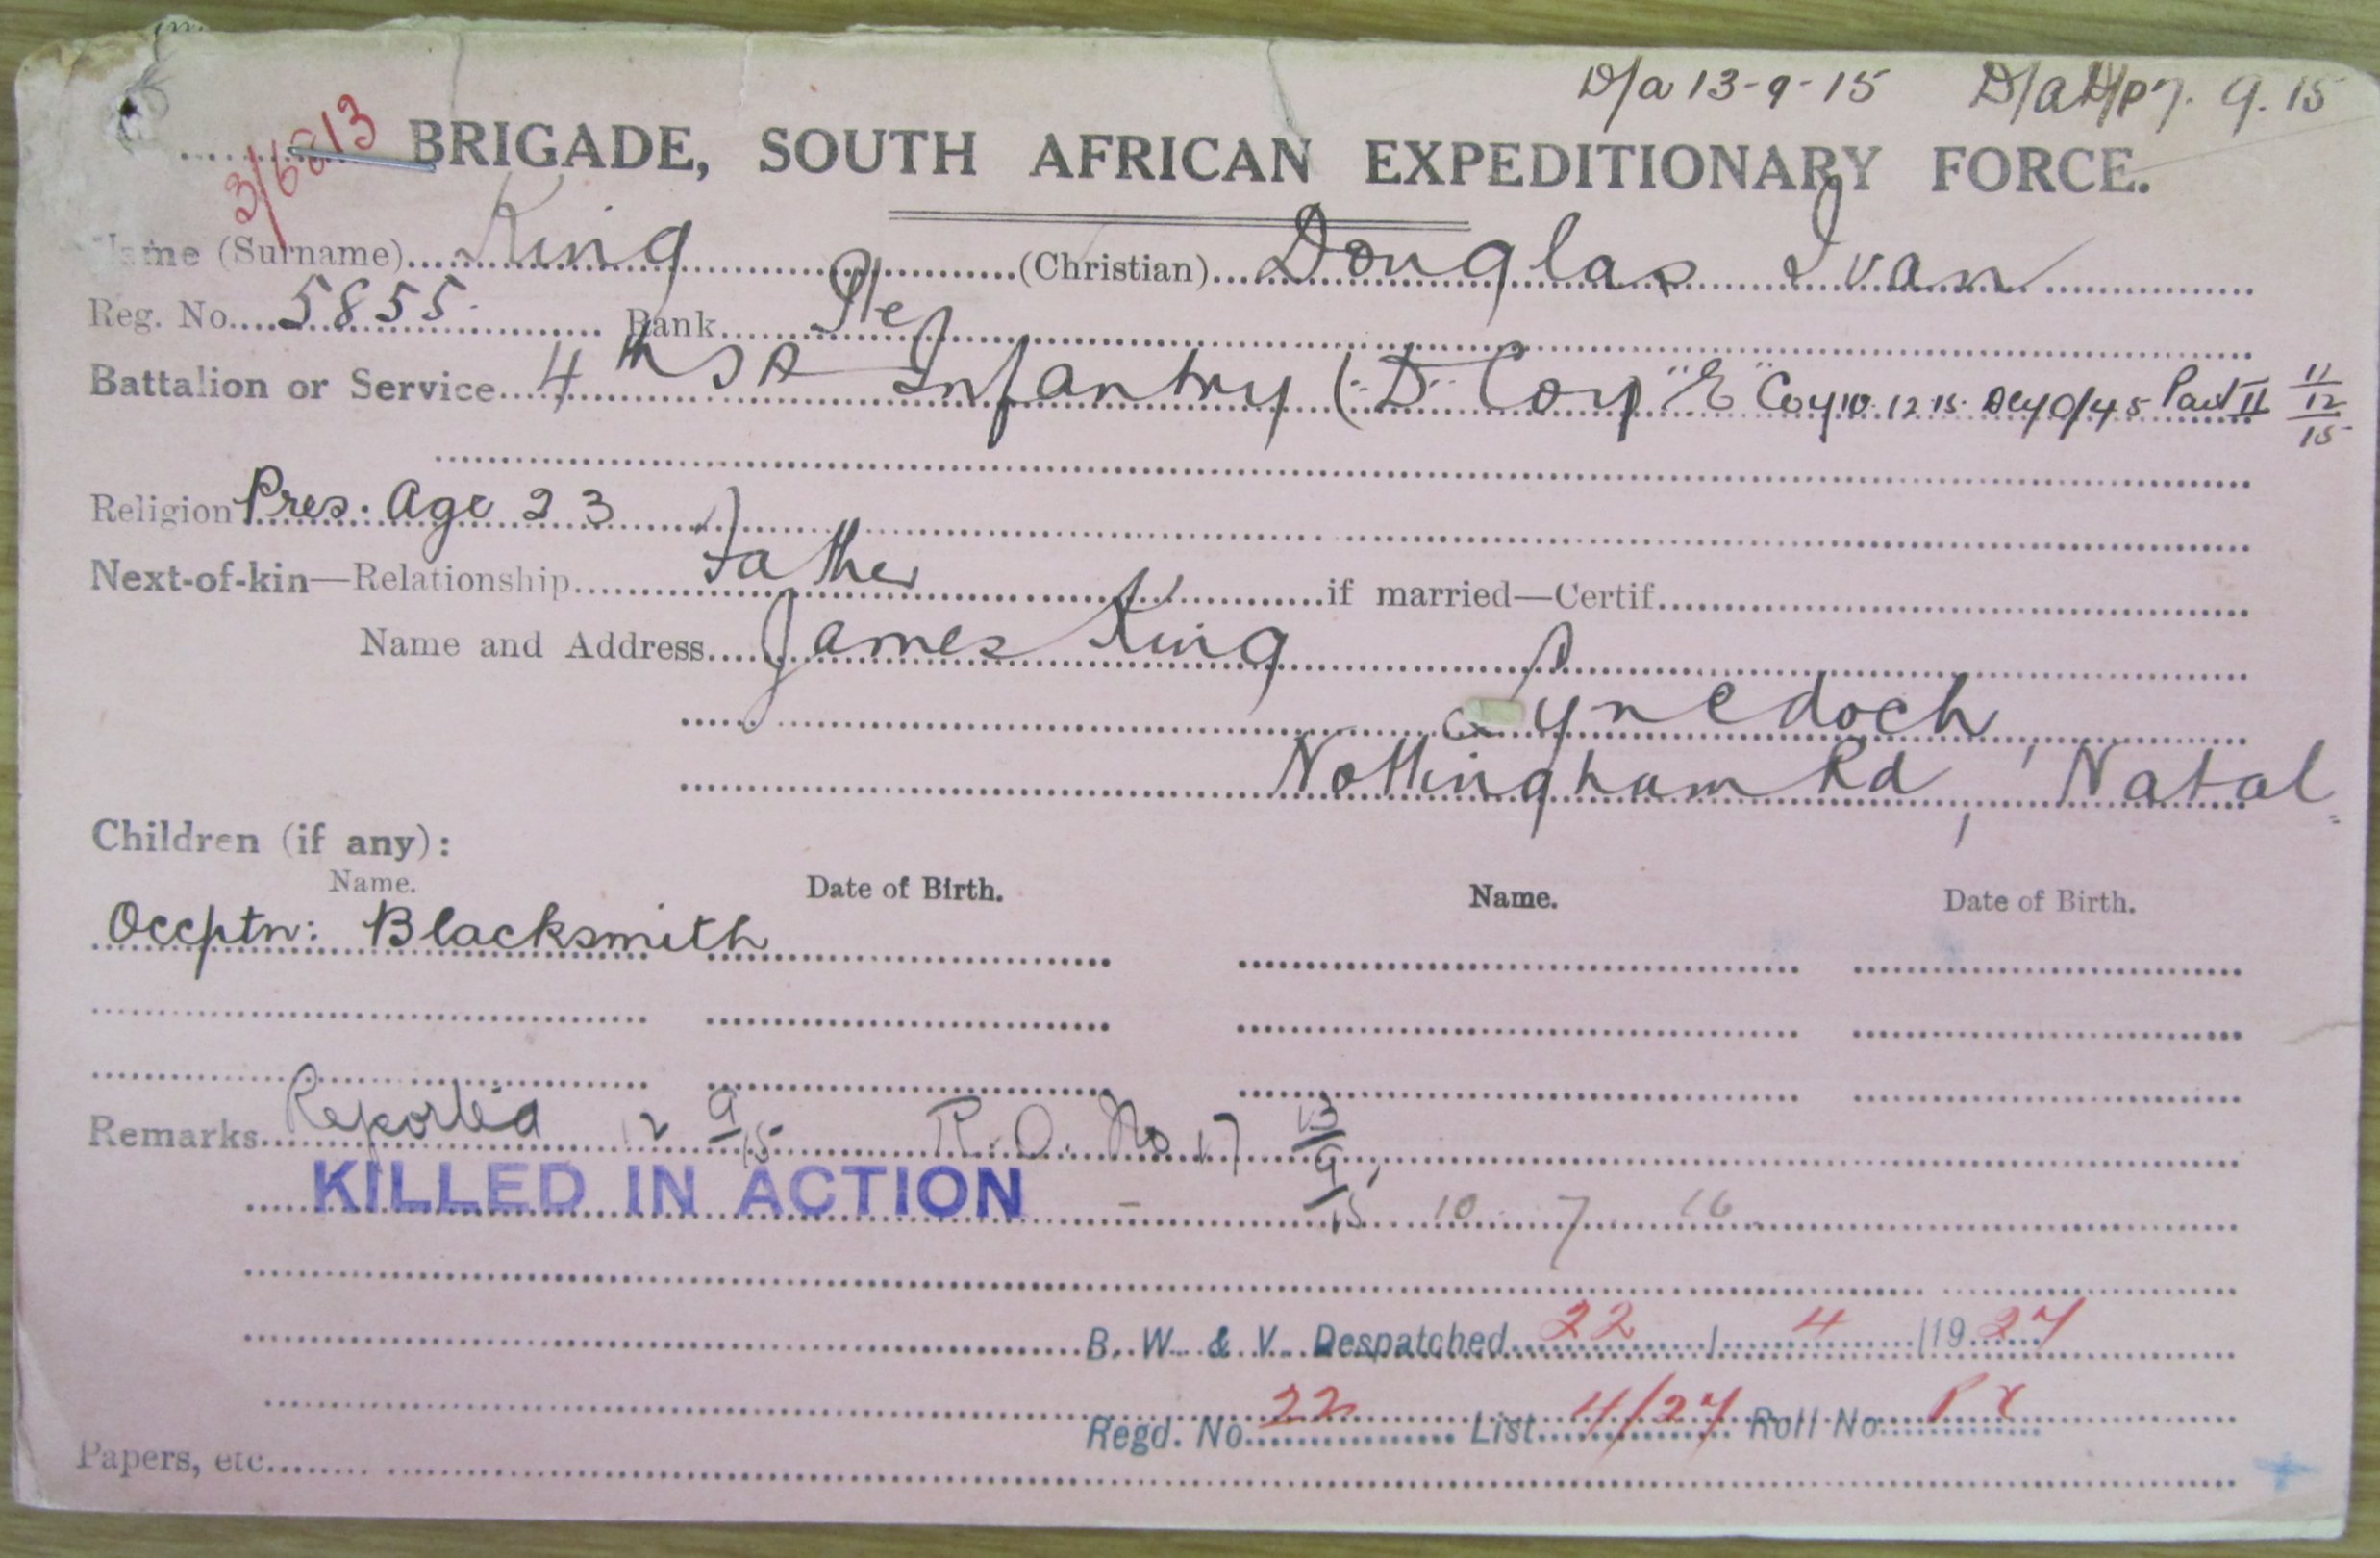 D/a 13-9-15 D/a D/p 7. 9. 15
3/6813
BRIGADE, SOUTH AFRICAN EXPEDITIONARY FORCE.
Name (Surname) King (Christian) Douglas Ivan
Reg. No. 5855. Rank Pte
Battalion or Service 4th SA Infantry (D Coy "E" Coy 10.12.15. Dep O/45 Part II 11/12/15
Religion Pres. Age 23
Next-of-kin—Relationship Father if married—Certif.
Name and Address James King
Lynedoch
Nottingham Rd, Natal
Children (if any):
Name. Date of Birth. Name. Date of Birth.
Occptn: Blacksmith
Remarks Reported 12 9/15 R.O. No 17 13/9/15
KILLED IN ACTION - 10 7 16
B. W. & V. Despatched 22 / 4 / 1927
Regd. No. 22 List 4/27 Roll No.
Papers, etc.